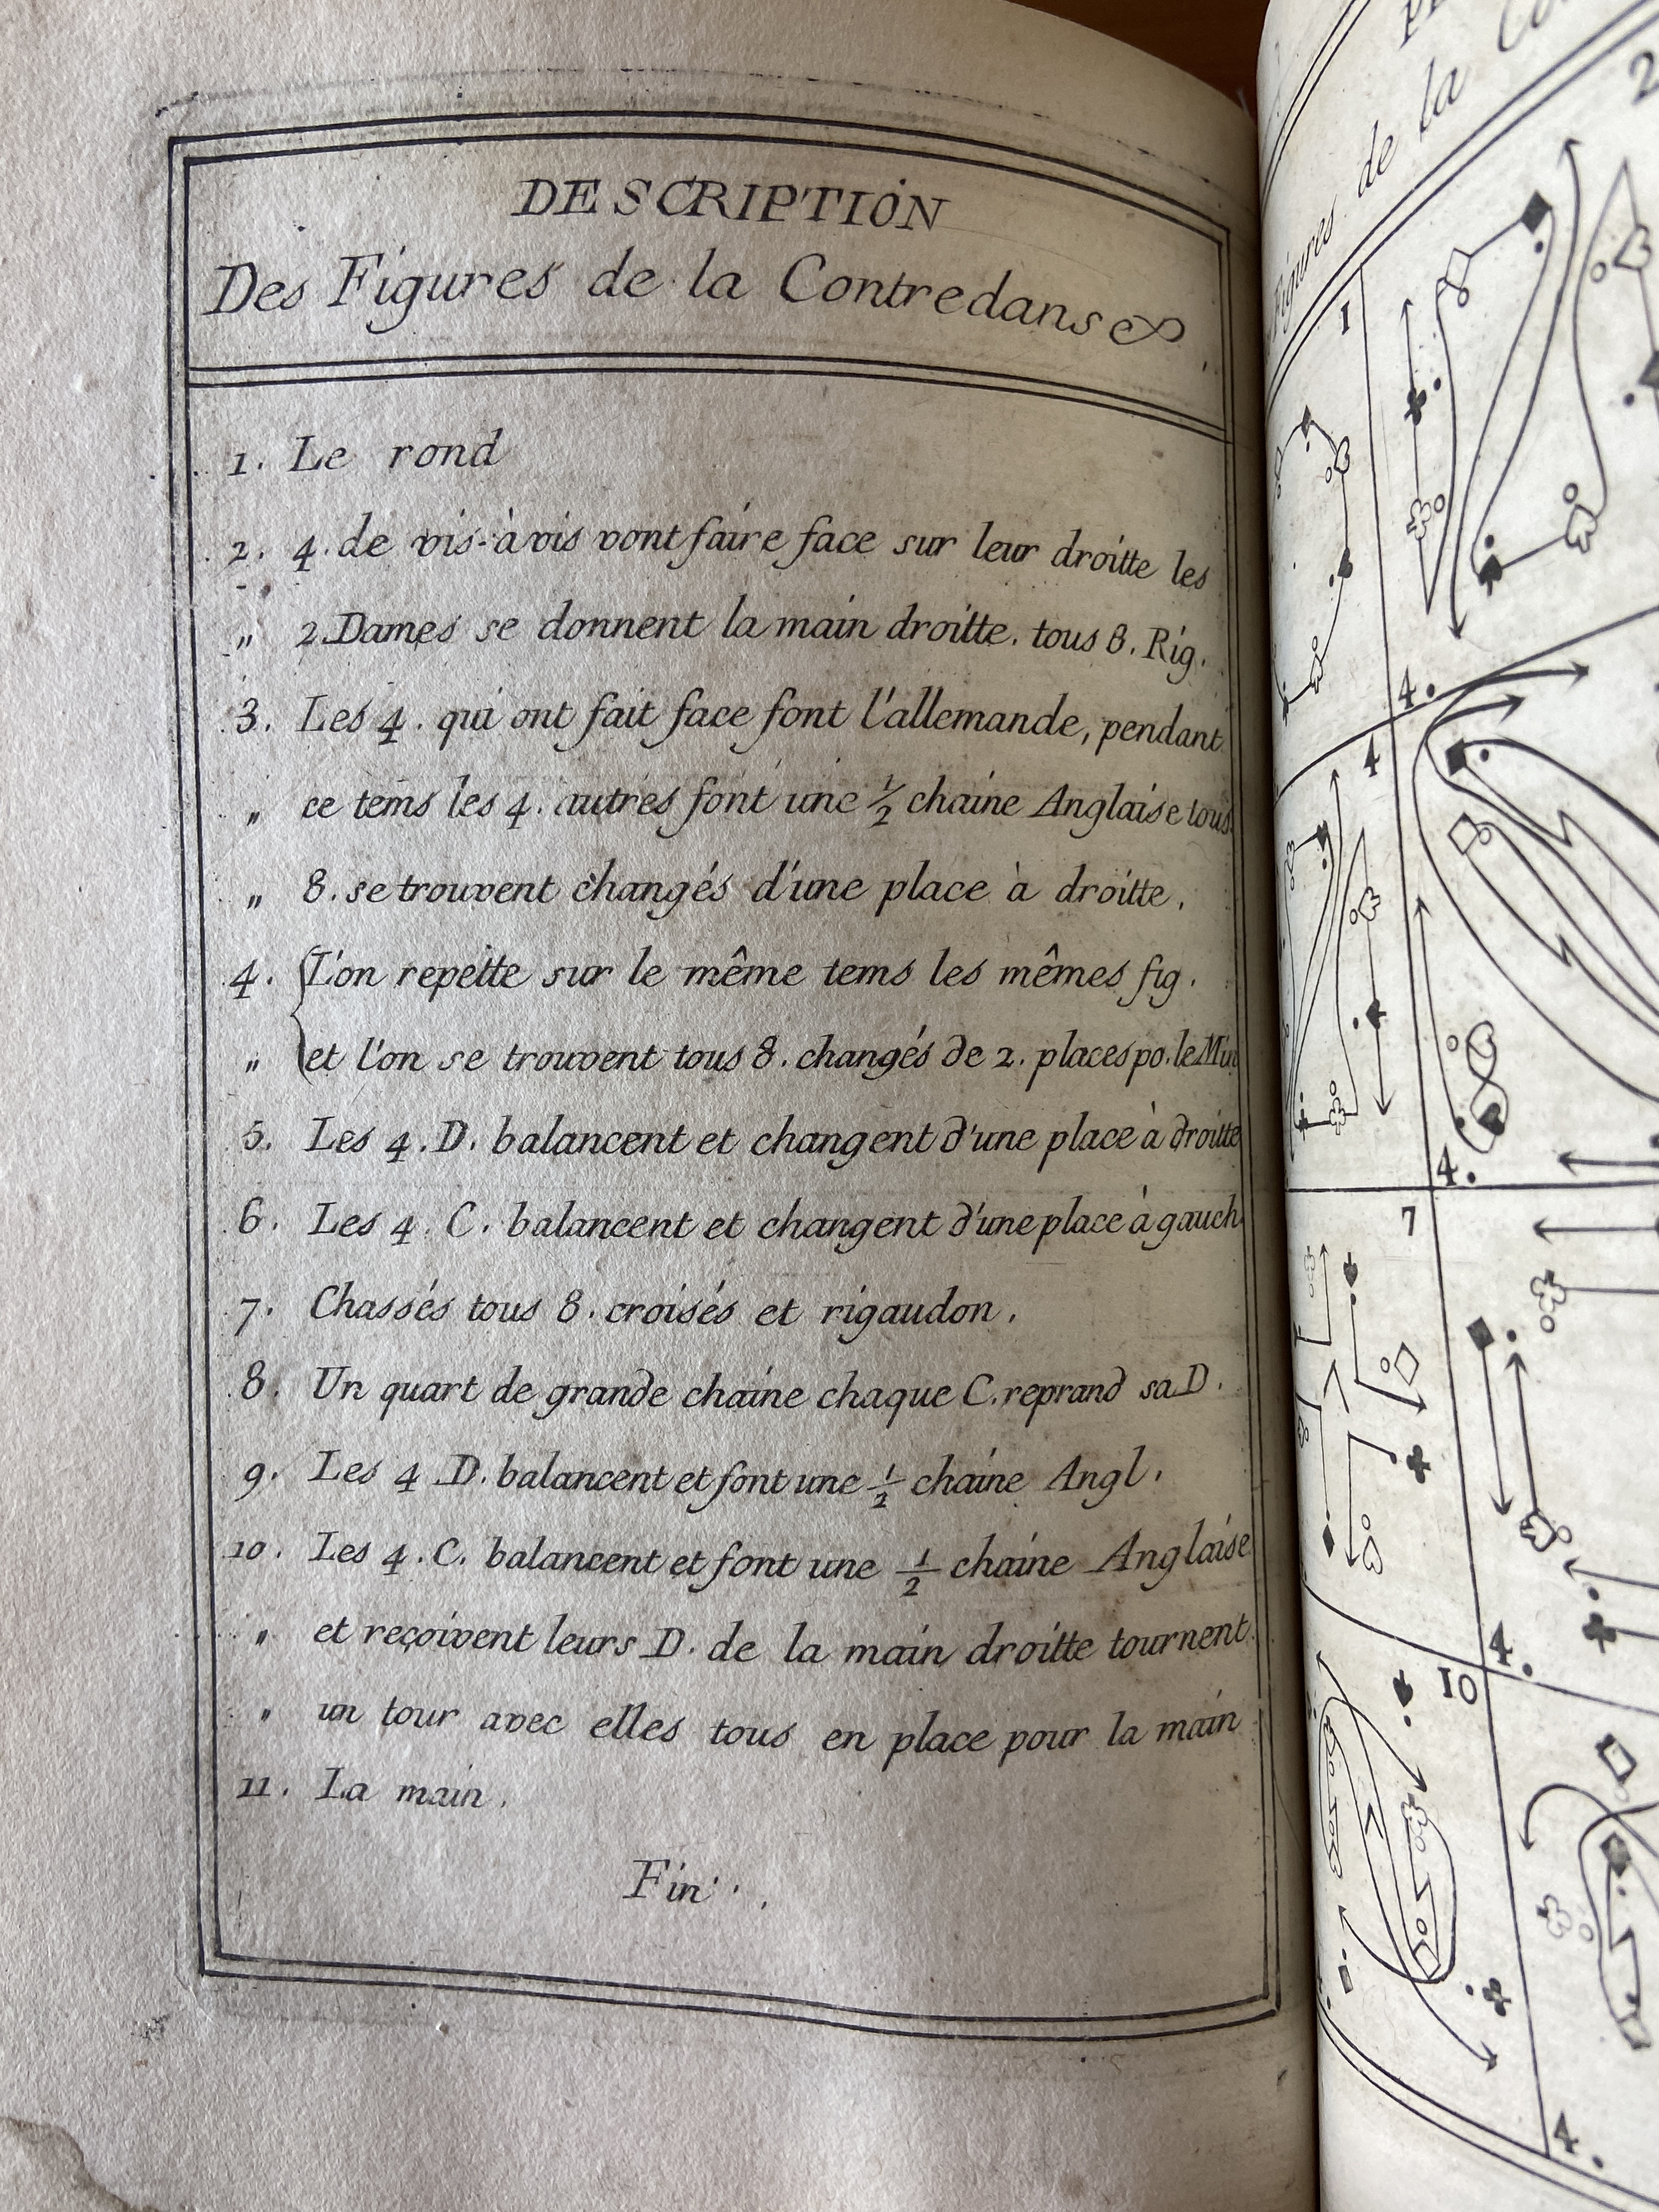 DESCRIPTION
Des Figures de la Contredanse
1. Le rond
2. 4. de vis-à vis vont faire face sur leur droitte les
" 2. Dames se donnent la main droitte. tous 8. Rig.
3. Les 4. qui ont fait face font l'allemande, pendant
" ce tems les 4. autres font une ½ chaine Anglaise tous
" 8. se trouvent changés d'une place à droitte.
4. L'on repette sur le même tems les mêmes fig.
" et l'on se trouvent tous 8. changés de 2. places po. le
5. Les 4. D. balancent et changent d'une place à droitte
6. Les 4. C. balancent et changent d'une place à gauch
7. Chassés tous 8. croisés et rigaudon.
8. Un quart de grande chaine chaque C. reprand sa D.
9. Les 4 D. balancent et font une ½ chaine Angl.
10. Les 4. C. balancent et font une ½ chaine Anglaise
" et reçoivent leurs D. de la main droitte tournent
" un tour avec elles tous en place pour la main
11. La main.
Fin
Figures de la
1
2
4.
4
4.
7
4.
10
4.